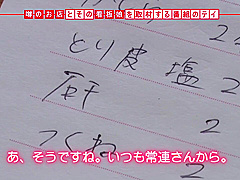 噂のお店とその看板娘を取材する番組のテイ
とり皮 塩 2
肝 2
つくね 2
あ、そうですね。いつも常連さんから。